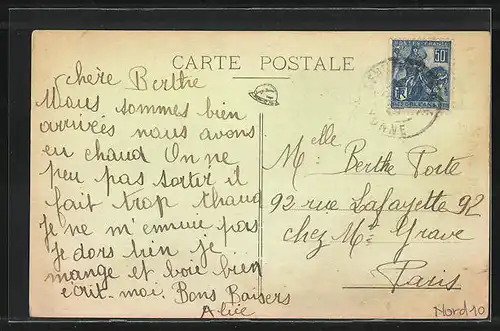 CARTE POSTALE
chère Berthe
Nous sommes bien
arrivés nous avons
eu chaud On ne
peu pas sortir il
fait trop chaud
Je ne m'ennuie pas
je dors bien je
mange et boie bien
écrit-moi. Bons Baisers
Alice
POSTES FRANCE
50c
RF
ORLEANS
YONNE
Melle Berthe Porte
92 rue Lafayette 92
chez Mr Grave
Paris
Nord10